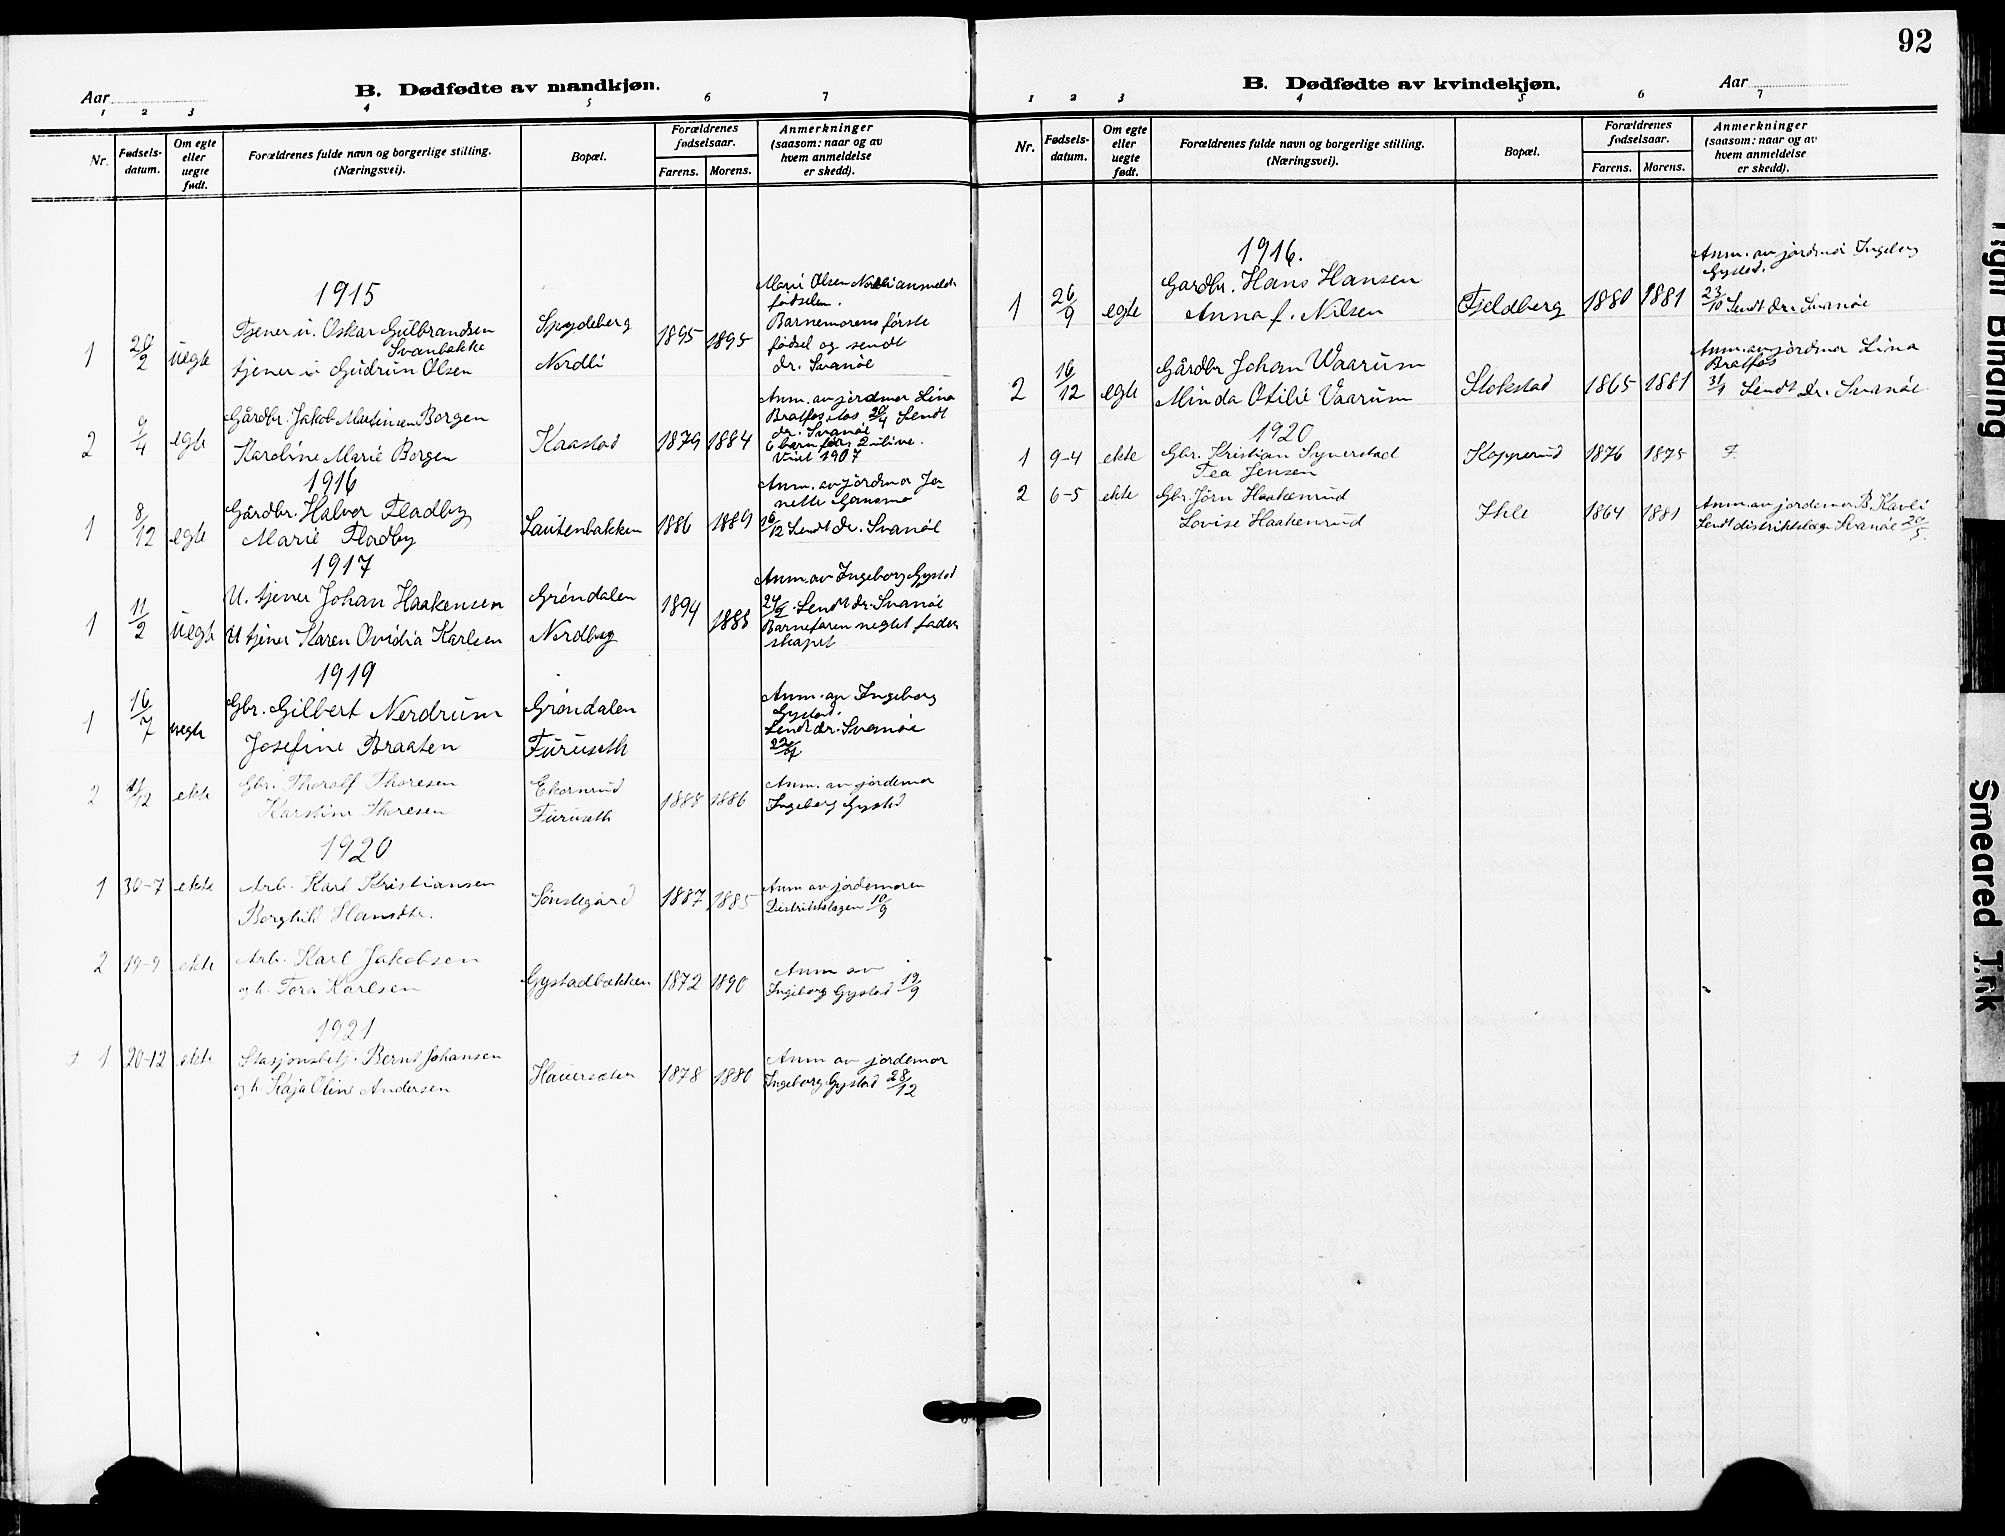 92
Aar
B. Dødfødte av mandkjøn.
1 2 3 4 5 6 7
Nr.
Fødsels-
datum.
Om egte
eller
uegte
født.
Forældrenes fulde navn og borgerlige stilling.
(Næringsvei).
Bopæl.
Forældrenes
fødselsaar.
Farens. Morens.
Anmerkninger
(saasom: naar og av
hvem anmeldelse
er skedd).
1915
Marie Olsen Nordli anmeldt
fødselen.
1 2 uegte Tjener u. Oskar Gulbrandsen Spydeberg 1895 1895 Barnemorens første
Svanbakke fødsel og sendt
tjener u Gudrun Olsen Nordli dr. Svanøe
2 9/4 egte Gårdbr. Jakob Martinsen Borgen Kaastad 1879 1884 Anm. av jordmor Lina
Karoline Marie Borgen Bratfos 20/4 Sendt
dr. Svanøe
6 barn før, 2 ilive.
Viet 1907
1916
1 8/12 egte Gårdbr. Halvor Fladby Lautenbakken 1886 1889 Anm. av jordmor Ja-
Marie Fladby nette
16/12 Sendt dr. Svanøe
1917
1 11/2 uegte U. tjener Johan Haakensen Grøndalen 1894 1888 Anm. av Ingeborg Gystad
U tjener Karen Ovidia Karlsen Nordby Sendt dr. Svanøe
Barnefaren negtet fader
skapet
1919
1 16/7 uegte Gbr. Gilbert Nerdrum Grøndalen Anm. av Ingeborg
Josefine Braaten Furuseth Gystad.
Sendt dr. Svanøe
2 12 ekte Gbr. Thoralf Thoresen Ekornrud 1888 1886 Anm. av jordemor
Karstine Thoresen Furuseth Ingeborg Gystad
1920
1 30-7 ekte Arb. Karl Kristiansen Søndegård 1887 1885 Anm av jordemoren
Borghill Hansdtr. Distriktslægen 10/9
2 19-9 ekte Arb. Karl Jakobsen Gystadbakken 1872 1890 Anm av
og h. Tora Karlsen Ingeborg Gystad 19/9
1921
1 20-12 ekte Stasjonsbetj. Bernt Johansen Hauersæter 1878 1880 Anm av jordemor
og h. Kaja Oline Andersen Ingeborg Gystad 28/12
B. Dødfødte av kvindekjøn.
Aar
1 2 3 4 5 6 7
Nr.
Fødsels-
datum.
Om egte
eller
uegte
født.
Forældrenes fulde navn og borgerlige stilling.
(Næringsvei).
Bopæl.
Forældrenes
fødselsaar.
Farens. Morens.
Anmerkninger
(saasom: naar og av
hvem anmeldelse
er skedd).
1916.
1 26/9 egte Gardbr. Hans Hansen Fjeldberg 1880 1881 Anm. av jordmor Ingeborg
Anna f. Nilsen Gystad.
23/10 Sendt dr. Svanøe
2 16/12 egte Gårdbr Johan Waarum Stokstad 1865 1881 Anm. av jordmor Lina
Minda Otilie Vaarum Bratfos
31/1 Sendt dr. Svanøe.
1920
1 9-4 ekte Gbr. Kristian Synerstad Kopperud 1876 1875 F.
Tea Jensen
2 6-5 ekte Gbr. Jørn Haakenrud Ihle 1864 1881 Anm av jordemor B. Kavli
Lovise Haakenrud Sendt distriktslæge Svanøe 20/5.
Tight Binding
Smeared Ink